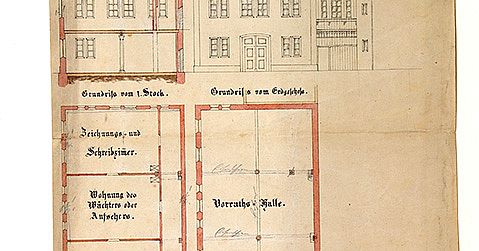 Grundriss vom 1. Stock.
Grundriss vom Erdgeschoss.
Zeichnungs- und
Schreibzimer.
Wohnung des
Wächters oder
Aufsehers.
Vorraths-Halle.